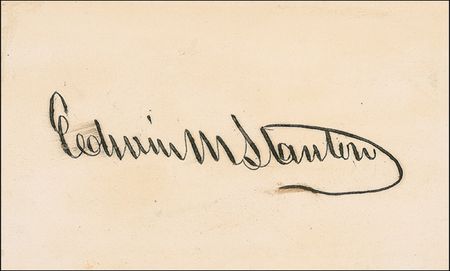 Edwin M Stanton